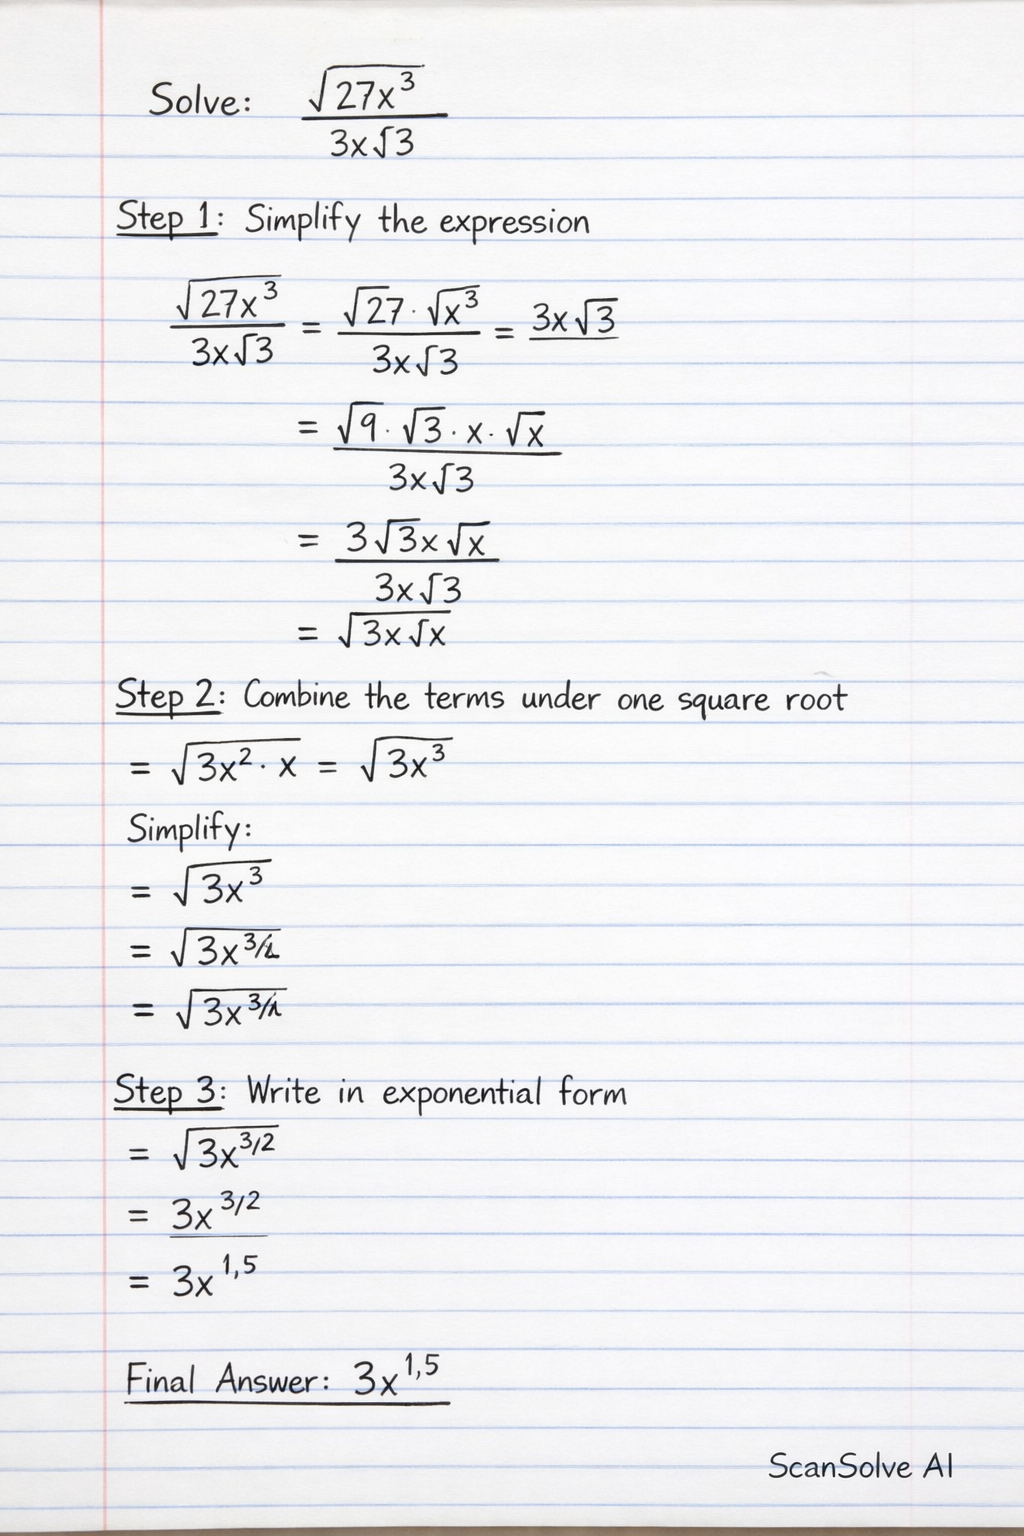 Solve: √27x³ / 3x√3
Step 1: Simplify the expression
√27x³ / 3x√3 = √27 · √x³ / 3x√3 = 3x√3
= √9 · √3 · x · √x / 3x√3
= 3√3x√x / 3x√3
= √3x√x
Step 2: Combine the terms under one square root
= √3x² · x = √3x³
Simplify:
= √3x³
= √3x³/
= √3x³/
Step 3: Write in exponential form
= √3x^3/2
= 3x^3/2
= 3x^1,5
Final Answer: 3x^1,5
ScanSolve AI